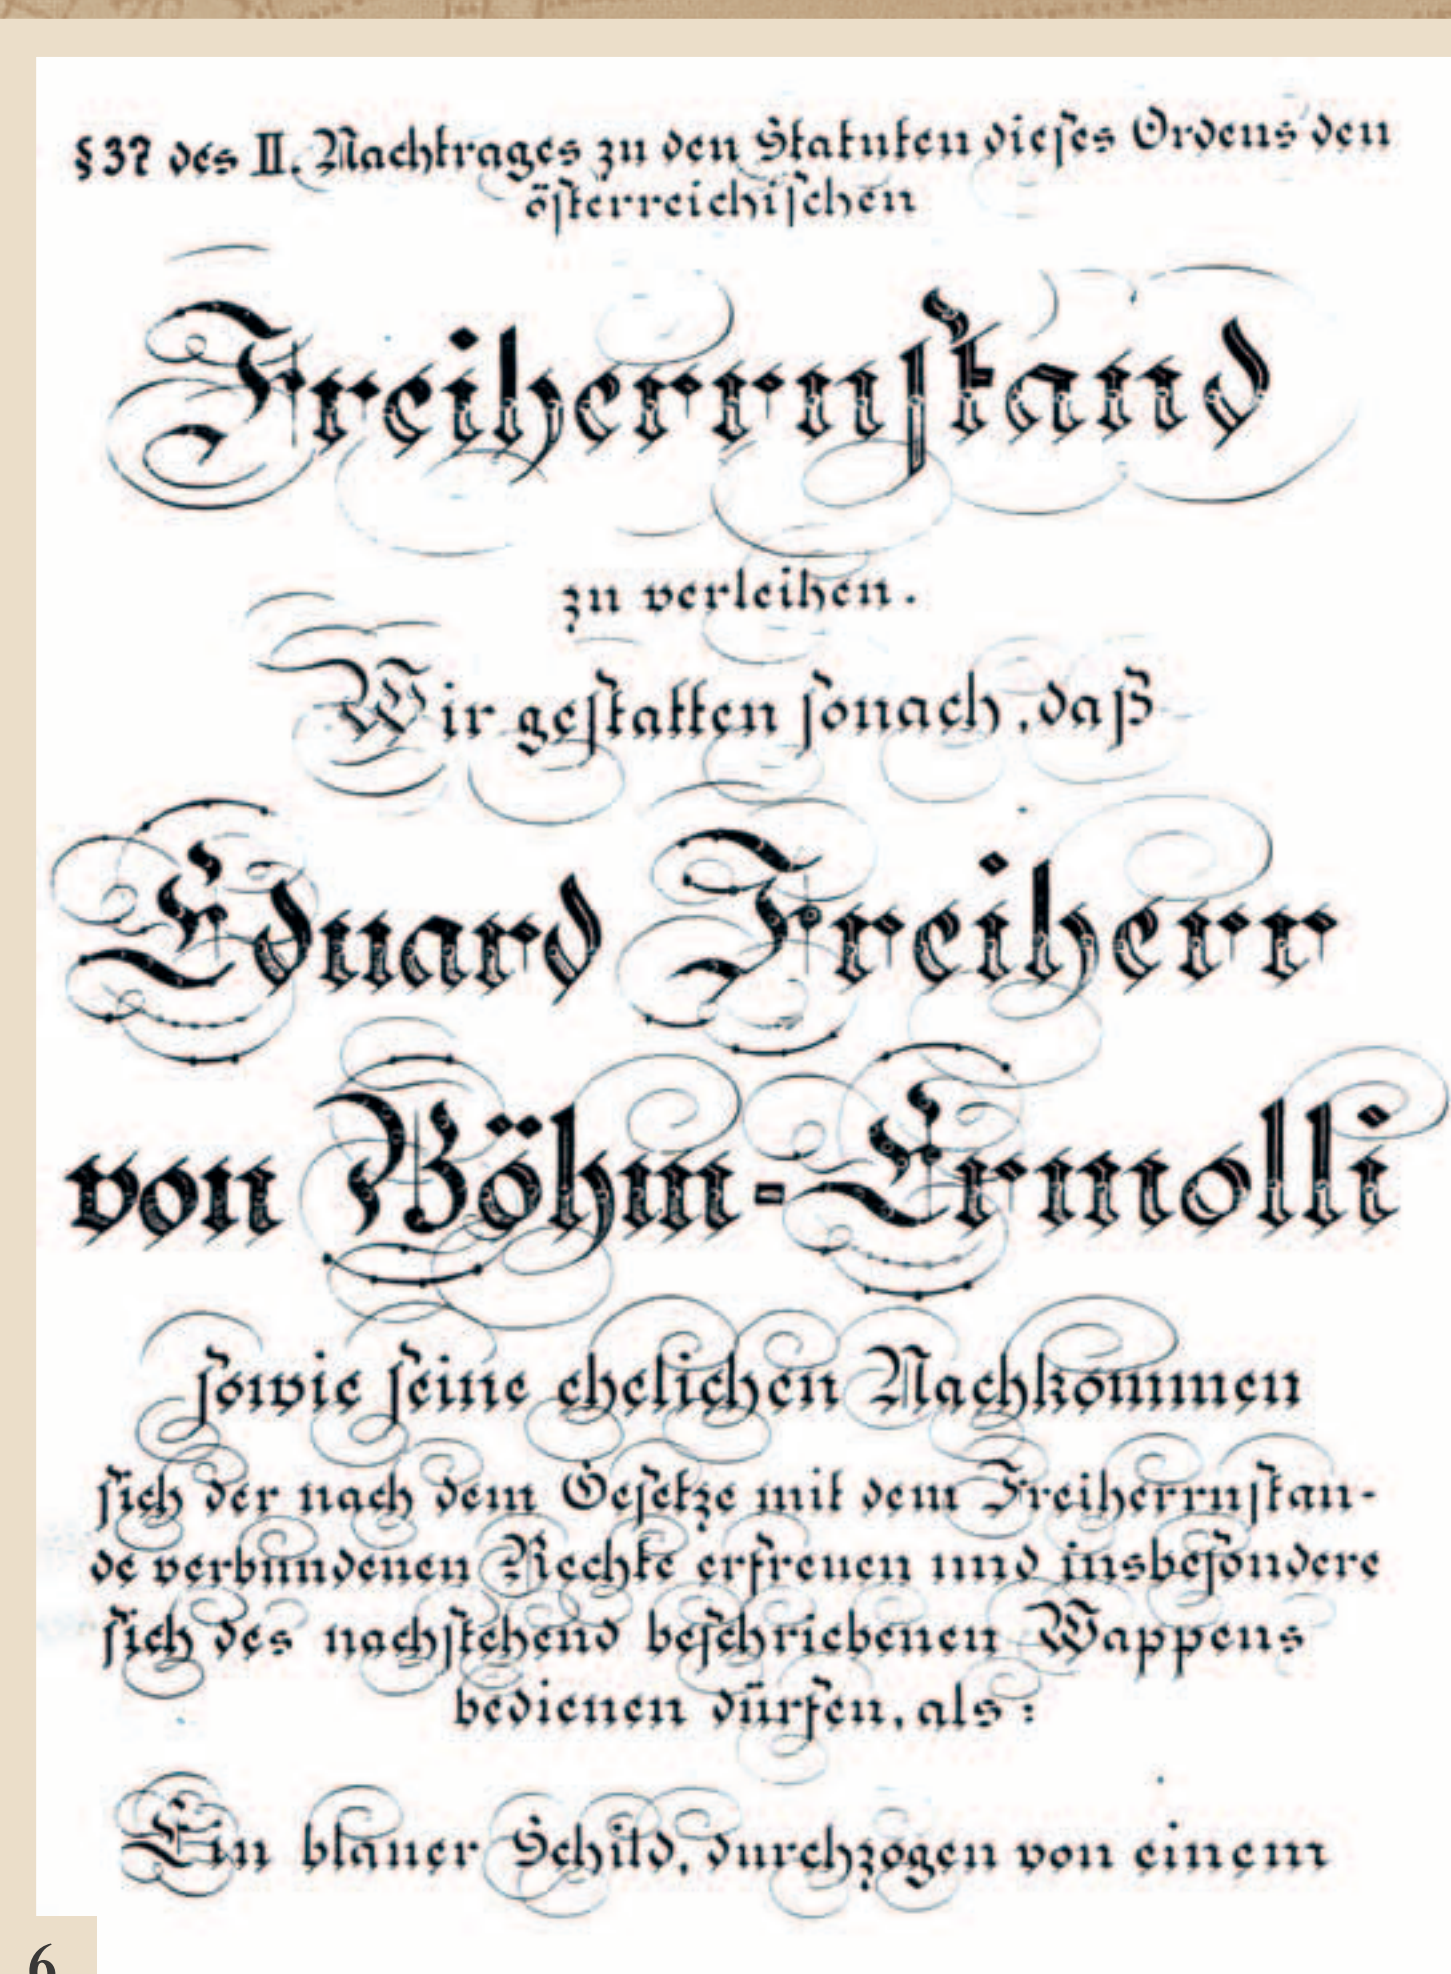 §37 des II. Nachtrages zu den Statuten dieses Ordens den
österreichischen
Freiherrnstand
zu verleihen.
Wir gestatten sonach, daß
Eduard Freiherr
von Böhm-Ermolli
sowie seine ehelichen Nachkommen
sich der nach dem Gesetze mit dem Freiherrnstan-
de verbundenen Rechte erfreuen und insbesondere
sich des nachstehend beschriebenen Wappens
bedienen dürfen, als:
Ein blauer Schild, durchzogen von einem
6